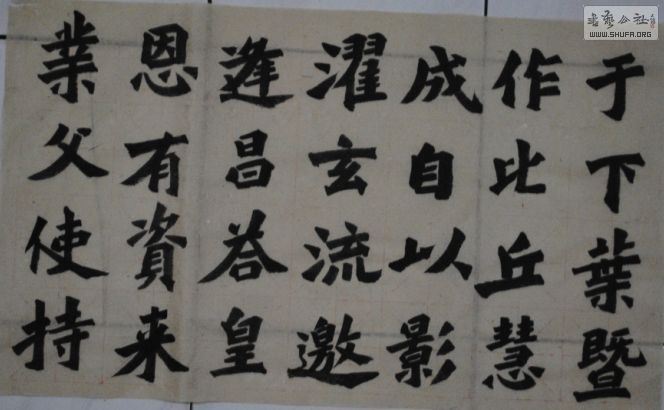 于下葉暨
作比丘慧
成自以影
濯玄流邀
逢昌荅皇
恩有資来
業父使持
書藝公社
WWW.SHUFA.ORG